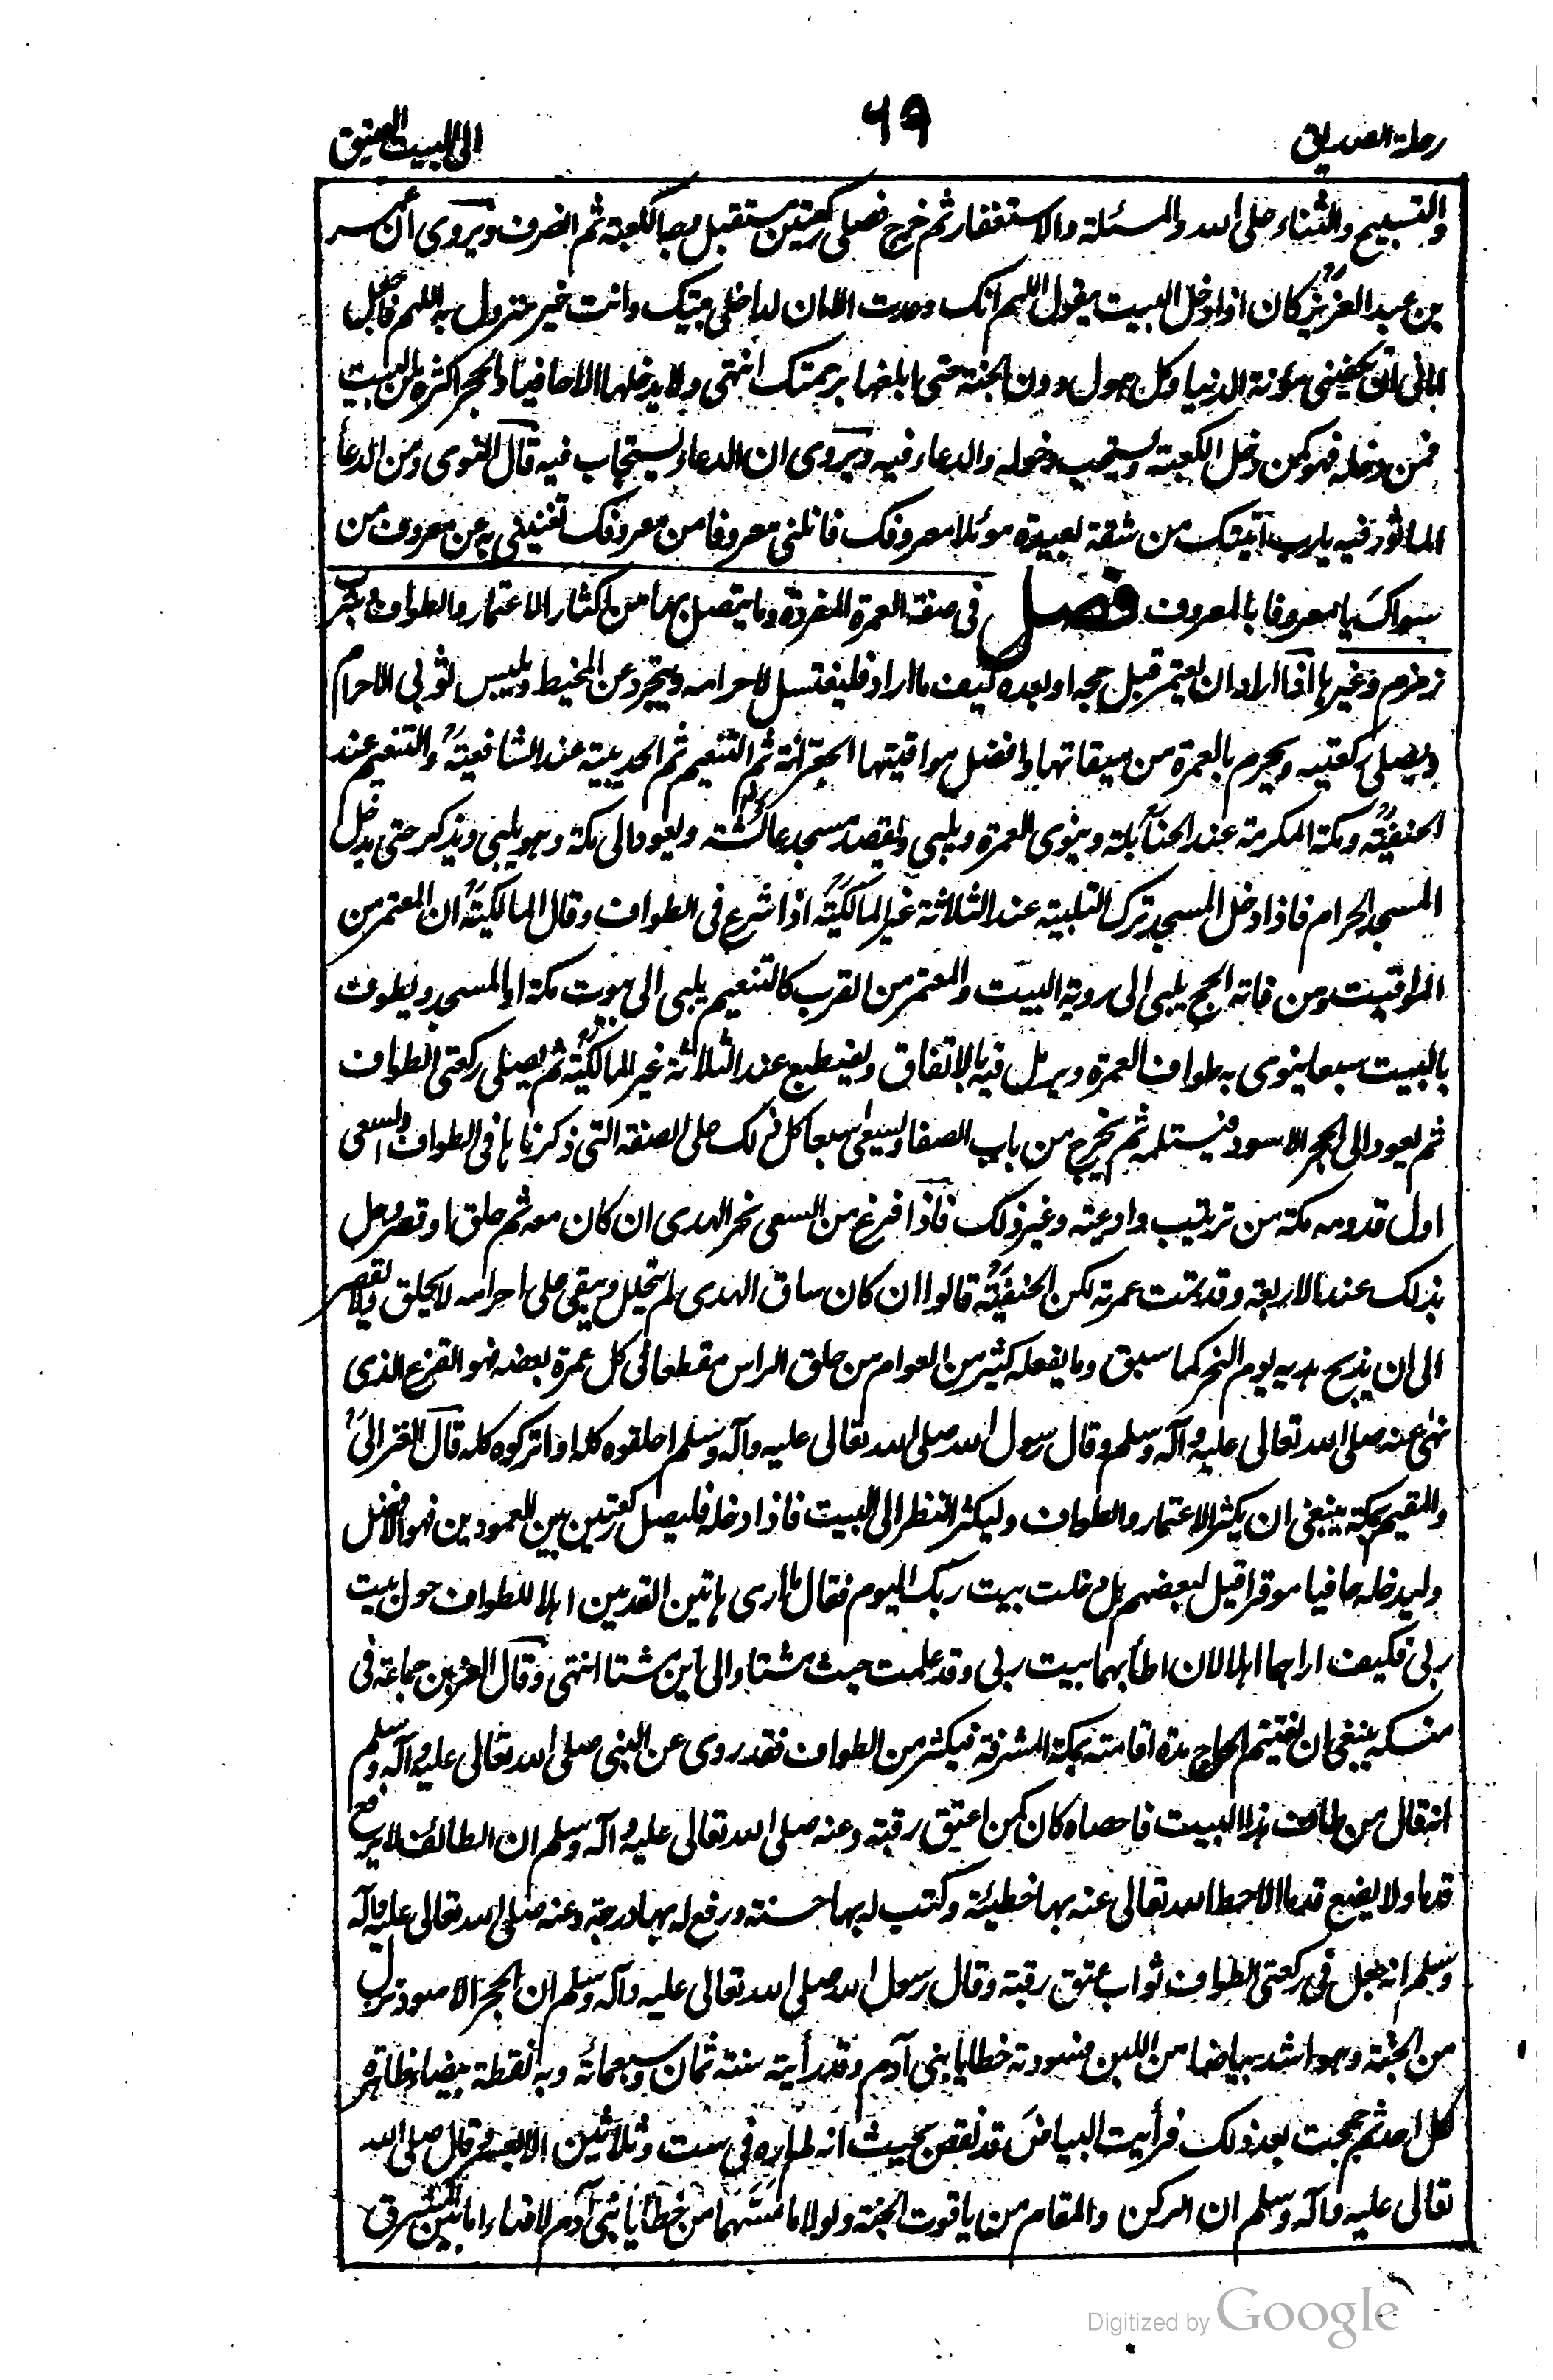 رحلة الصديق
٦٩
الى البيت العتيق
والتسبيح والثناء على الله والمسئلة والاستغفار ثم خرج فصلى ركعتين مستقبل وجه الكعبة ثم انصرف ويروى أن
بن عبد العزيز كان اذا دخل البيت يقول اللهم انك وعدت الامان لداخلى بيتك وانت خير منزول به اللهم فاجعل
امانى ان تكفينى مؤنة الدنيا وكل هول دون الجنة حتى ابلغها برحمتك انتهى ولا يدخلها الا حافيا والحجر اكثره من البيت
فمن دخله فهو كمن دخل الكعبة ويستحب دخوله والدعاء فيه ويروى ان الدعاء يستجاب فيه قال النووى ومن الدعأ
الماثور فيه يا رب اتيتك من شقة بعيدة مؤملا معروفك فانلنى معروفا من معروفك تغنينى به عن معروف من
سواك يا معروفا بالمعروف فصل فى صفة العمرة المفردة وما يتصل بها من اكثار الاعتمار والطواف
زمزم وغيرها اذا اراد ان يعتمر قبل حجه او بعده كيف ما اراد فليغتسل لاحرامه ويتجرد عن المخيط ويلبس ثوبى الاحرام
ويصلى ركعتيه ويحرم بالعمرة من ميقاتها وافضل مواقيتها الجعرانة ثم التنعيم ثم الحديبية عند الشافعية والتنعيم عند
الحنفية ومكة المكرمة عند الحنابلة وينوى العمرة ويلبى ويقصد مسجد عائشة ويعود الى مكة وهو يلبى ويذكر حتى يدخل
المسجد الحرام فاذا دخل المسجد ترك التلبية عند الثلاثة غير المالكية اذا شرع فى الطواف وقال المالكية ان المعتمر من
المواقيت ومن فاته الحج يلبى الى روية البيت والمعتمر من القرب كالتنعيم يلبى الى بيوت مكة او المسجد ويطوف
بالبيت سبعا ينوى به طواف العمرة ويرمل فيه بالاتفاق ويضطبع عند الثلاثة غير المالكية ثم يصلى ركعتى الطواف
ثم يعود الى الحجر الاسود فيستلمه ثم يخرج من باب الصفا ويسعى سبعا كل ذلك على الصفة التى ذكرناها فى الطواف والسعى
اول قدومه مكة من ترتيب وادعية وغير ذلك فاذا فرغ من السعى نحر الهدى ان كان معه ثم حلق او قصر وحل
بذلك عند الاربعة وقد تمت عمرته لكن الحنفية قالوا ان كان ساق الهدى لم يتحلل ويبقى على احرامه لا يحلق ولا يقصر
الى ان يذبح هديه يوم النحر كما سبق وما يفعله كثير من العوام من حلق الراس مقطعا فى كل عمرة بعضه فهو القزع الذى
نهى عنه صلى الله تعالى عليه وآله وسلم وقال رسول الله صلى الله تعالى عليه وآله وسلم احلقوه كله او اتركوه كله قال الغزالى
والمقيم بمكة ينبغى ان يكثر الاعتمار والطواف وليكثر النظر الى البيت فاذا دخله فليصل ركعتين بين العمودين فهو الافضل
وليدخله حافيا موقرا قيل لبعضهم هل دخلت بيت ربك اليوم فقال ما ارى هاتين القدمين اهلا للطواف حول بيت
ربى فكيف اراهما اهلا لان اطأ بهما بيت ربى وقد علمت حيث مشتا والى اين مشتا انتهى وقال العز بن جماعة فى
منسكه ينبغى ان يغتنم الحاج مدة اقامته بمكة المشرفة فيكثر من الطواف فقد روى عن النبى صلى الله تعالى عليه وآله وسلم
انه قال من طاف هذا البيت فاحصاه كان كمن اعتق رقبة وعنه صلى الله تعالى عليه وآله وسلم ان الطائف لا يرفع
قدما ولا يضع قدما الا حط الله تعالى عنه بها خطيئة وكتب له بها حسنة ورفع له بها درجة وعنه صلى الله تعالى عليه وآله
وسلم انه جعل فى ركعتى الطواف ثواب عتق رقبة وقال رسول الله صلى الله تعالى عليه وآله وسلم ان الحجر الاسود نزل
من الجنة وهو اشد بياضا من اللبن فسودته خطايا بنى آدم وقد رأيته سنة ثمان وسبعمائة وبه نقطة بيضاء ظاهرة
لكل احد ثم حججت بعد ذلك فرأيت البياض قد نقص بحيث انه لم اره فى ست وثلاثين الا بعسر وقال صلى الله
تعالى عليه وآله وسلم ان الركن والمقام من ياقوت الجنة ولولا ما مسهما من خطايا بنى آدم لاضاء اما بين المشرق
Digitized by Google